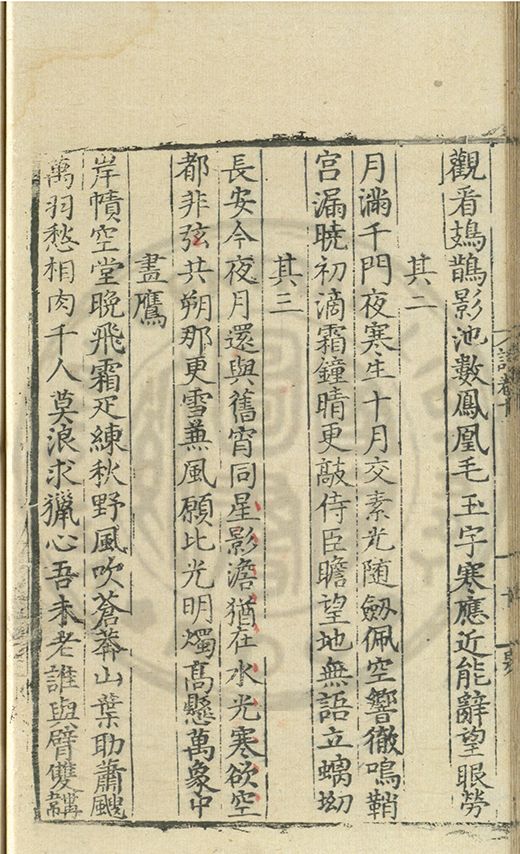 觀看鳷鵲影池數鳳凰毛玉宇寒應近能辭望眼勞
其二
月滿千門夜寒生十月交素光随劒佩空響徹鳴鞘
宮漏曉初滴霜鐘晴更敲侍臣瞻望地無語立螭坳
其三
長安今夜月還與舊宵同星影澹猶在水光寒欲空
都非弦共朔那更雪兼風願比光明燭髙懸萬象中
畫鷹
岸幘空堂晚飛霜疋練秋野風吹蒼莽山葉助蕭颼
萬羽愁相肉千人莫浪求獵心吾未老誰與臂雙鞲